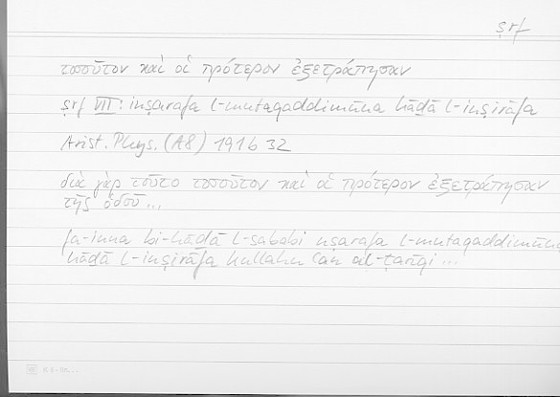 ṣrf
τοσοῦτον καὶ οἱ πρότερον ἐξετράπησαν
ṣrf VII: inṣarafa l-mutaqaddimūna hāḏā l-inṣirāfa
Arist. Phys. (A8) 191b 32
διὰ γὰρ τοῦτο τοσοῦτον καὶ οἱ πρότερον ἐξετράπησαν
τῆς ὁδοῦ...
fa-inna bi-hāḏā l-sababi nṣarafa l-mutaqaddimūna
hāḏā l-inṣirāfa kullahu ʿan al-ṭarīqi...